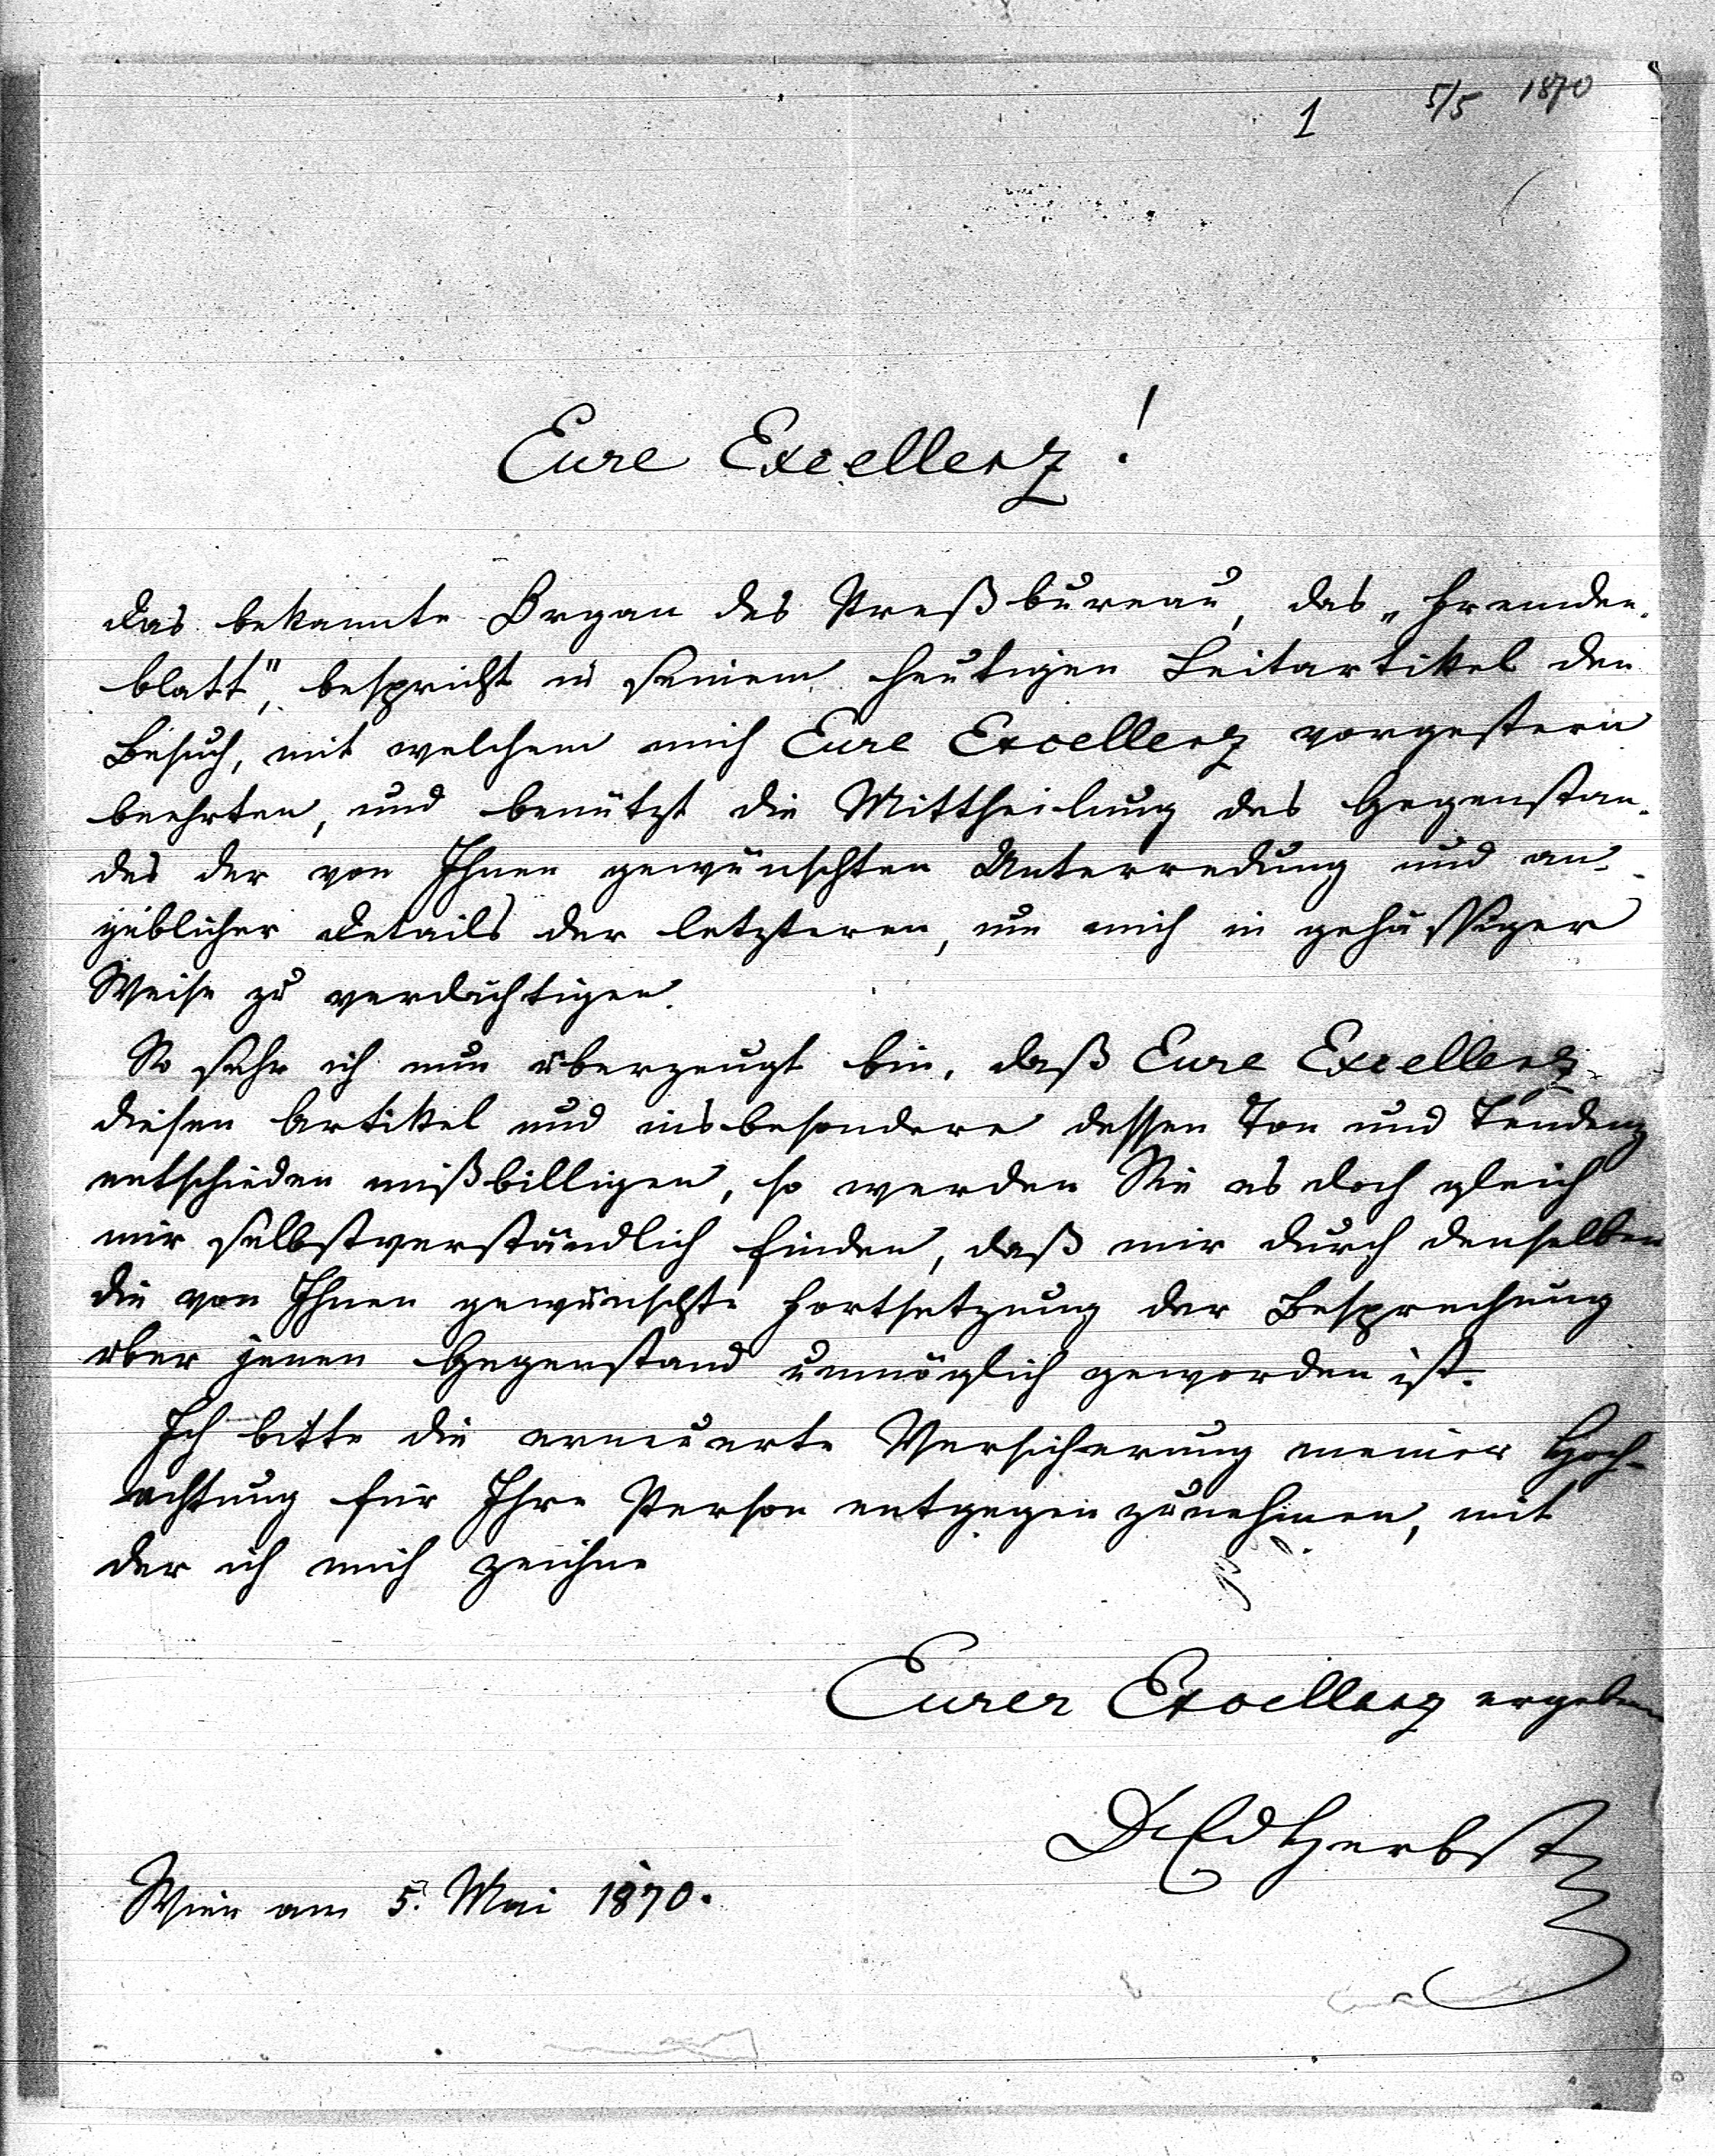 1 5/5 1870
Eure Excellenz!
Das bekannte Organ des Preßbureau, das „Fremden-
blatt", bespricht in seinem heutigen Leitartikel den
Besuch, mit welchem mich Eure Excellenz vorgestern
beehrten, und benützt die Mittheilung des Gegenstan-
des der von Ihnen gewünschten Unterredung und an-
geblicher Details der letzteren, um mich in gehässiger
Weise zu verdächtigen.
So sehr ich nun überzeugt bin, daß Eure Excellenz
diesen Artikel und insbesondere dessen Ton und Tendenz
entschieden mißbilligen, so werden Sie es doch gleich
mir selbstverständlich finden, daß mir durch denselben
die von Ihnen gewünschte Fortsetzung der Besprechung
über jenen Gegenstand unmöglich geworden ist.
Ich bitte die erneuerte Versicherung meiner Hoch-
achtung für Ihre Person entgegenzunehmen, mit
der ich mich zeichne
Eurer Excellenz ergeben
Dr Ed Herbst
Wien am 5. Mai 1870.